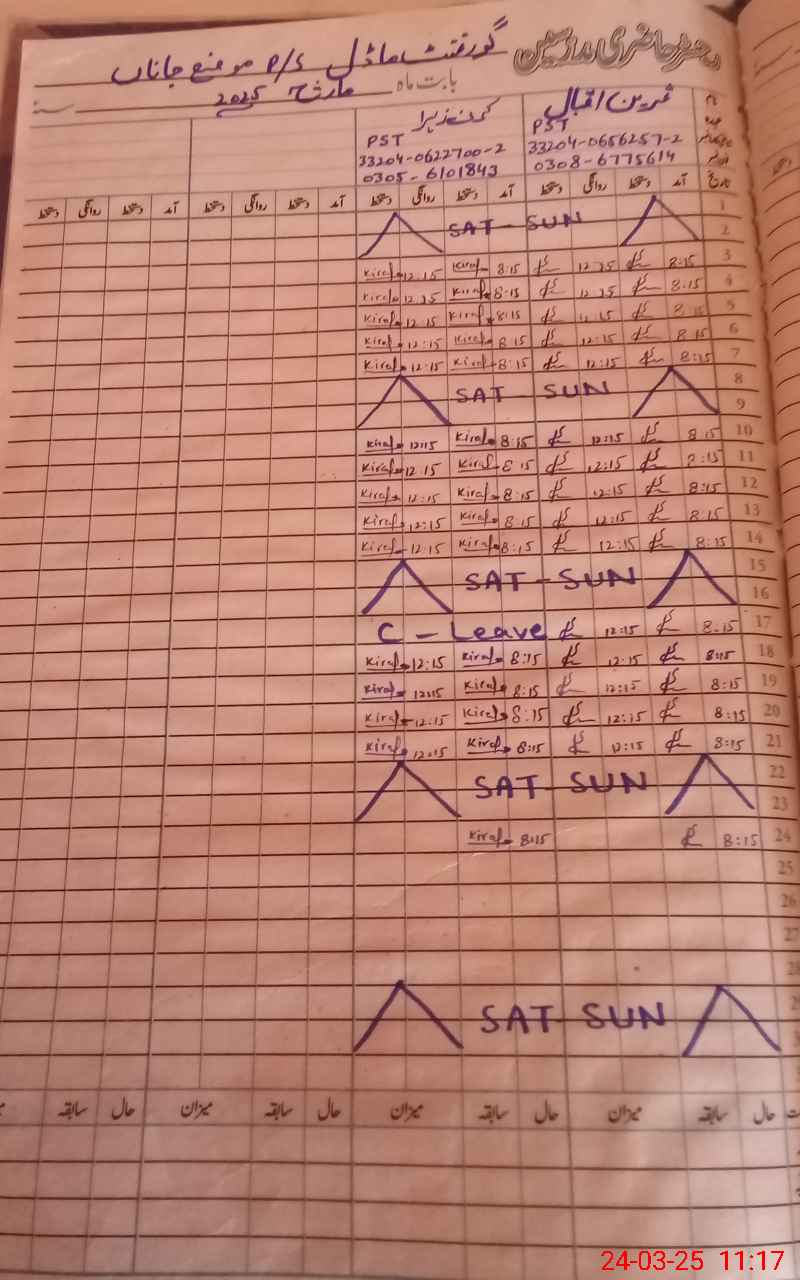 رجسٹر حاضری مدرسین
گورنمنٹ ماڈل P/S موضع جاناں
بابت ماہ مارچ 2025 سنہ
نام ثمرین اقبال کرن زہرا
عہدہ PST PST
33204-0656257-2 33204-0622700-2
0308-6775614 0305-6101843
تاریخ آمد دستخط روانگی دستخط آمد دستخط روانگی دستخط آمد دستخط روانگی دستخط آمد دستخط روانگی دستخط
1
2 SAT - SUN
3 8:15 12:15 8:15 Kiran 12:15 Kiran
4 8:15 12:15 8:15 Kiran 12:15 Kiran
5 8:15 12:15 8:15 Kiran 12:15 Kiran
6 8:15 12:15 8:15 Kiran 12:15 Kiran
7 8:15 12:15 8:15 Kiran 12:15 Kiran
8 SAT - SUN
9
10 8:15 12:15 8:15 Kiran 12:15 Kiran
11 8:15 12:15 8:15 Kiran 12:15 Kiran
12 8:15 12:15 8:15 Kiran 12:15 Kiran
13 8:15 12:15 8:15 Kiran 12:15 Kiran
14 8:15 12:15 8:15 Kiran 12:15 Kiran
15 SAT - SUN
16
17 8:15 12:15 C - Leave
18 8:15 12:15 8:15 Kiran 12:15 Kiran
19 8:15 12:15 8:15 Kiran 12:15 Kiran
20 8:15 12:15 8:15 Kiran 12:15 Kiran
21 8:15 12:15 8:15 Kiran 12:15 Kiran
22 SAT - SUN
23
24 8:15 8:15 Kiran
25
26
27
28
SAT - SUN
حال سابقہ میزان حال سابقہ میزان حال سابقہ میزان حال سابقہ
24-03-25 11:17